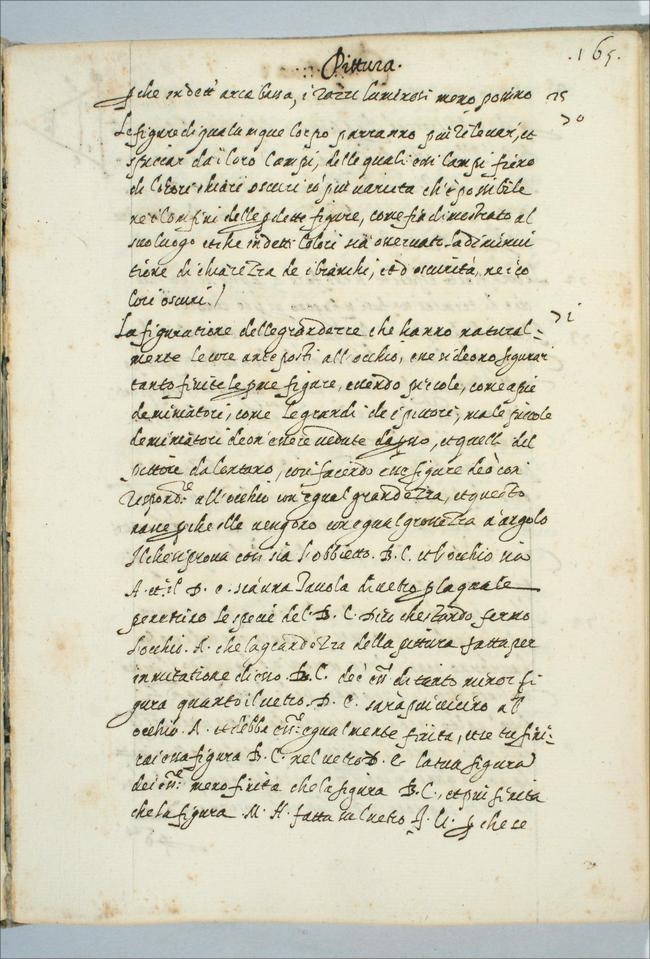 .165.
Pittura.
p che in dett' aria bassa, i razzi luminosi meno posino 25
Le figure di qualunque Corpo parranno piu rileuar, et 70
spiccar da i loro Campi, delle quali essi Campi fieno
di Colori chiari oscuri cō piu varieta ch'è possibile
ne i Confini delle p.dette figure, come fia dimostrato al
suo luogo et che in detti Colori sia osseruato la diminui
tione di chiarezza de i bianchi, et d'oscurità, ne i co
lori oscuri /
La figuratione delle grandezze che hanno natural= 71
mente le cose anteposti all'occhio, che si deono figurar
tanto finite le p.me figure, essendo piccole, come a
de miniatori, come le grandi de i pittori, ma le piccole
de miniatori deon' essere uedute da p.sso, et quelle del
pittore da lontano, cosi facendo esse figure deō cor
respond.re all'occhio con egual grandezza, et questo
nasce p che elle uengono con egual grossezza d'angolo
Il che si proua cosi sia l'obbietto .B. C. et l'occhio sia
A. et il D. e. sia una Tauola di uetro p la quale
penetrino le specie del .B. C. Dico che stando fermo
l'occhio .A. che la grandezza della pittura fatta per
immitatione di esso .B. C. de' e'ere di tanto minor fi
gura quanto il uetro .D. C. sarà piu uicino al
occhio .A. et debba e'ere egualmente finita, et se tu fini=
rai essa figura B. C. nel uetro D. e. la tua figura
dei e'ere meno finita che la figura B. C., et piu finita
che la figura .M. H. fatta sul uetro F. G. p che se